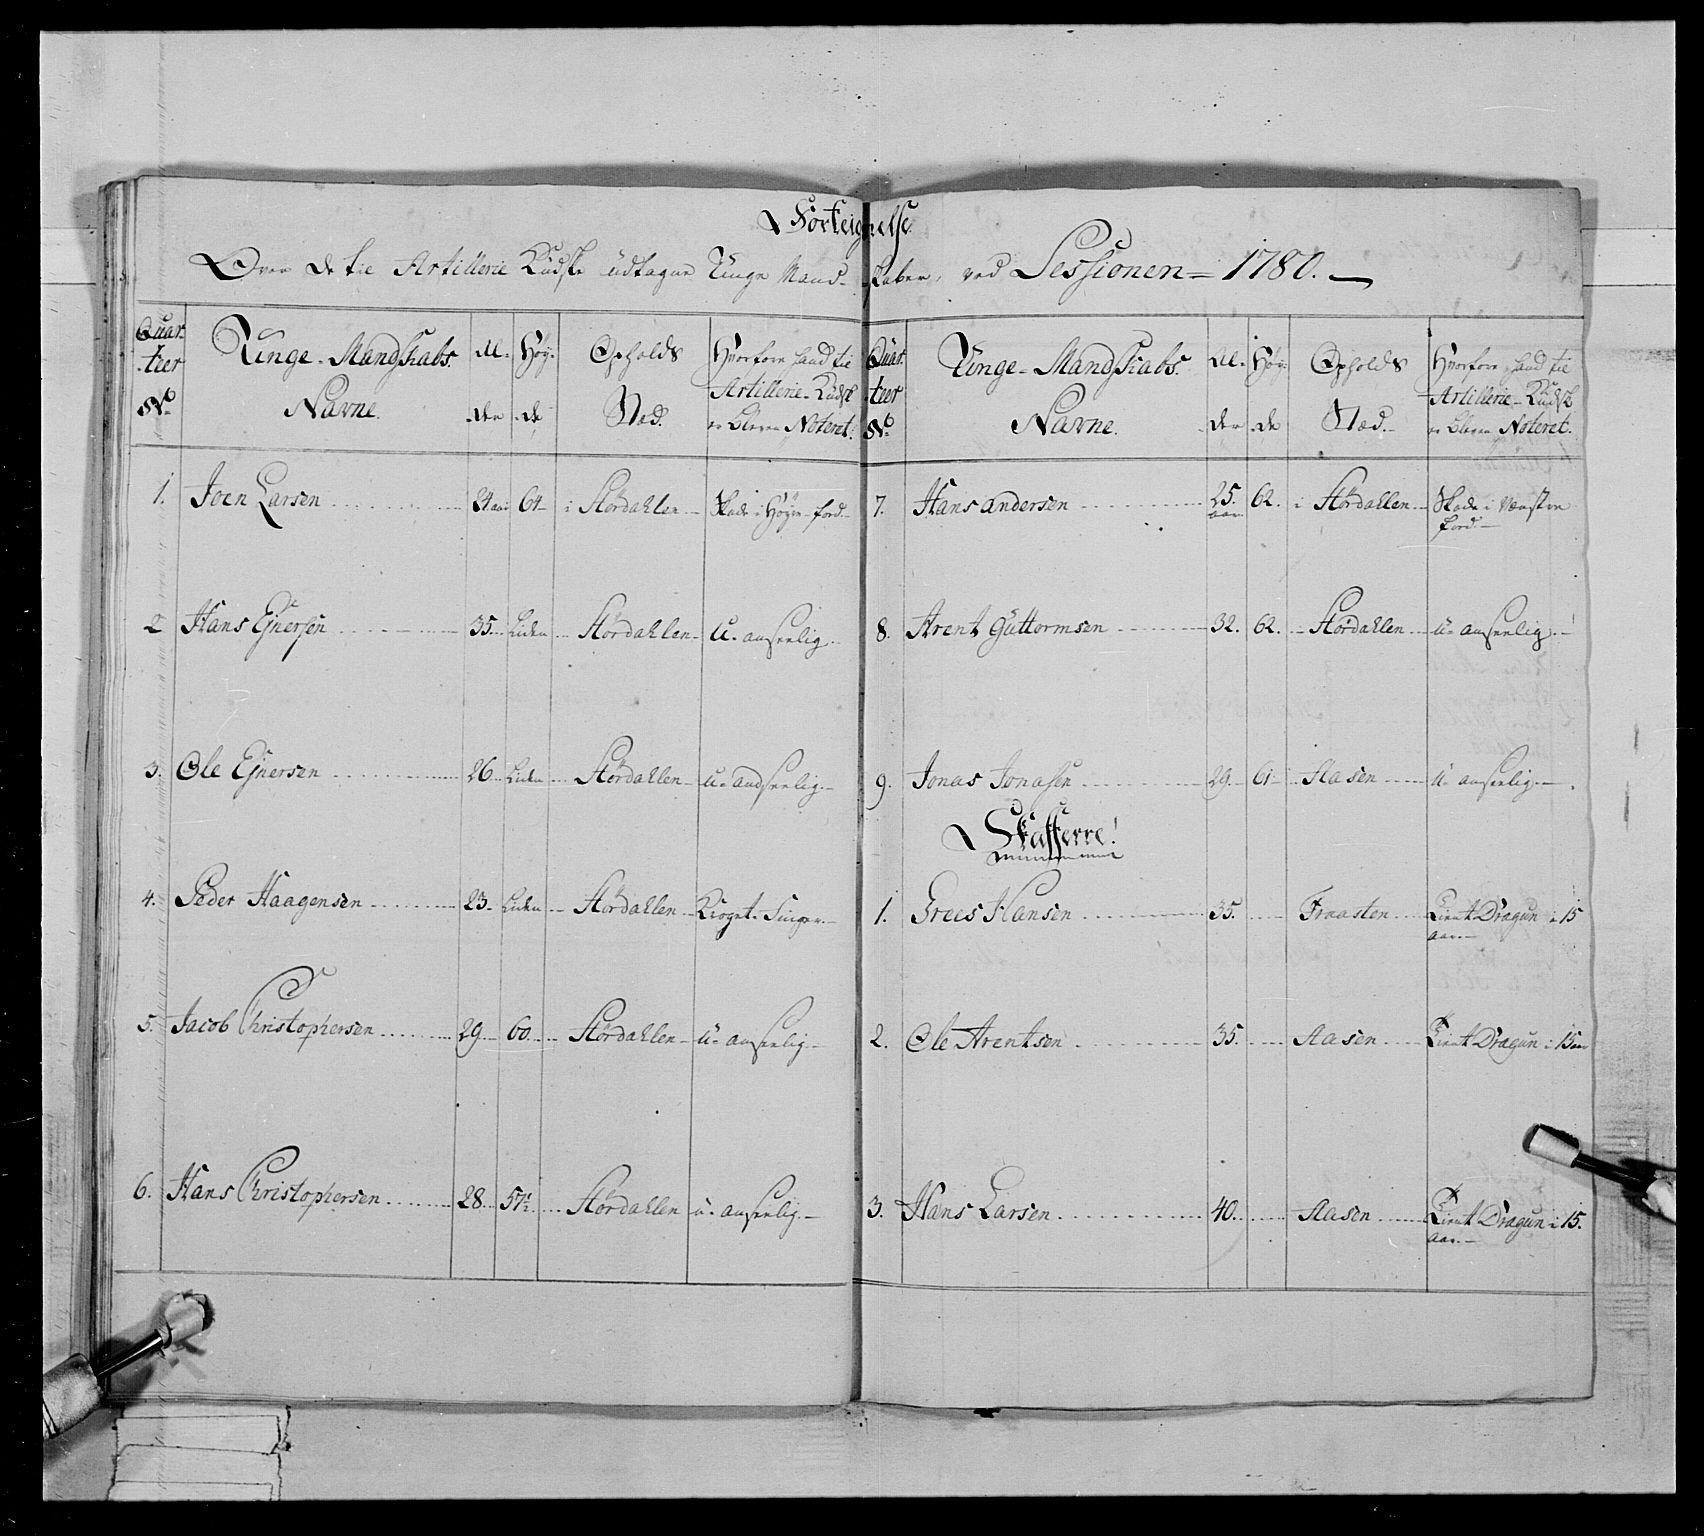 Forteignelse
Over de til Artillerie Kudske udtagne Unge Mand-skaber, ved Sessionen 1780.
Quar-teer No. Unge-Mandskabs Navne. Al-der Høy-de Opholds Stæd. Hvorfore hand til Artillerie-Kudsk er bleven Noteret.
1. Joen Larsen 24 aar 64 i Stördahlen Skade i Høyre ford
2 Hans Ejnersen 35 Liden Stördahlen u-anseelig
3. Ole Ejnersen 26 Liden Stördahlen u-andseelig
4. Peder Haagensen 23 Liden Stördahlen Kroget Finger
5. Jacob Christophersen 29 60 Stördahlen u-anseelig
6. Hans Christophersen 28 57½ Stördahlen u-anseelig
Quar-teer No. Unge-Mandskabs Navne. Al-der Høy-de Opholds Stæd. Hvorfore hand til Artillerie-Kudsk er bleven Noteret.
7. Hans Andersen 25. aar 62. i Stördallen Skade i venstre ford
8. Arent Guttormsen 32. 62. Stördahlen u-anseelig
9. Jonas Jonasen 29 61 Aasen u-anseelig
Skafferre!
1. Grees Hansen 35. Fraasten Tient Dragun i 15 aar
2. Ole Arentsen 35. Aasen Tient Dragun i 15 aar
3. Hans Larsen 40. Aasen Tient Dragun i 15. aar